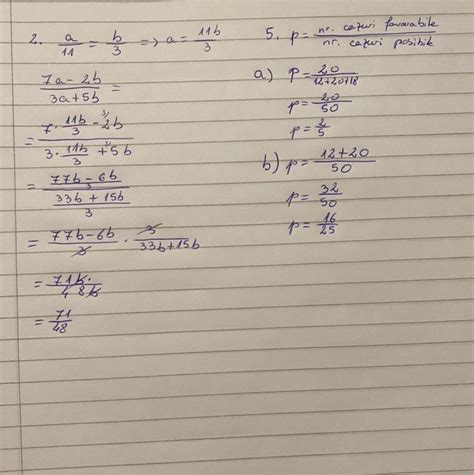 2. a/11 = b/3 => a = 11b/3
(7a - 2b)/(3a + 5b) =
= (7 · 11b/3 - ³⁾2b)/(3 · 11b/3 + ³⁾5b)
= ((77b - 6b)/3)/((33b + 15b)/3)
= (77b - 6b)/3 · 3/(33b + 15b)
= 71b/48b
= 71/48
5. p = nr. cazuri favorabile/nr. cazuri posibile
a) p = 20/(12+20+18)
p = 20/50
p = 2/5
b) p = (12+20)/50
p = 32/50
p = 16/25